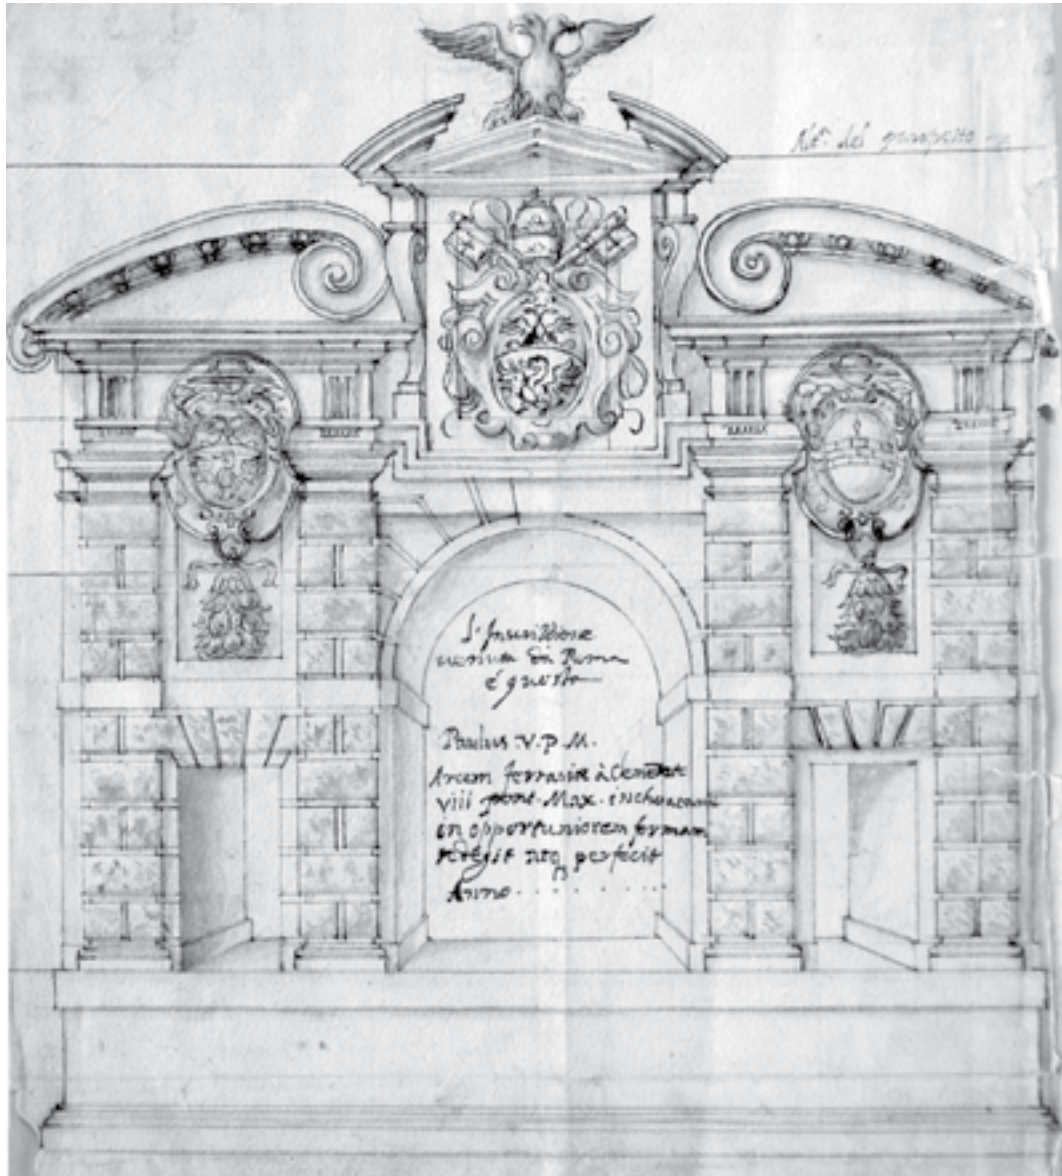 del parapetto
L'Inscrittione
venuta da Roma
é questa
Paulus .V. P. M.
Arcem ferrariæ à Clemente
viii pont. Max. inchoatam
in opportuniorem formam
redegit atq perfecit
Anno . . . . . . . .